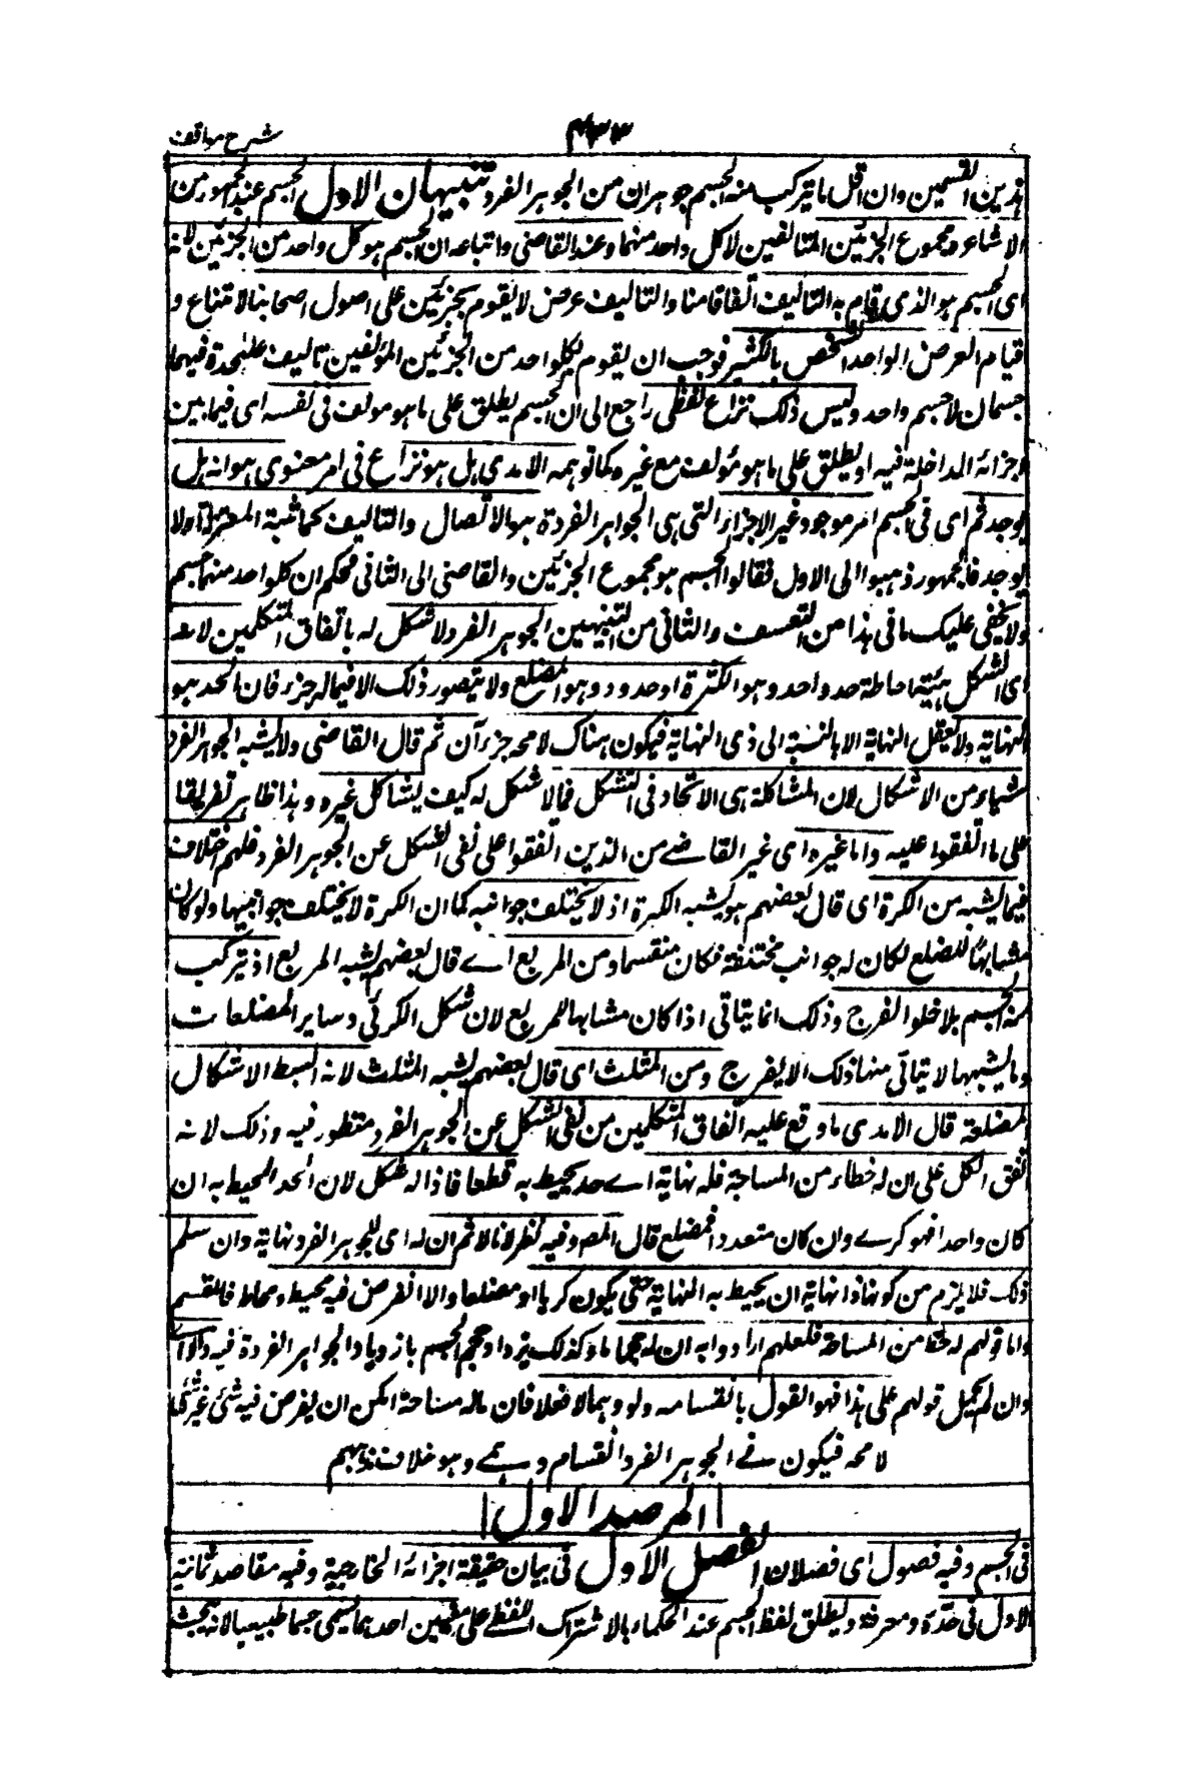 شرح مواقف
۴۳۳
هذين القسمين وان اقل ما يتركب منه الجسم جوهران من الجوهر الفرد تنبيهان الاول الجسم عند الجمهور من
الاشاعرة مجموع الجزئين المتالفين لا كل واحد منهما وعند القاضى واتباعه ان الجسم هو كل واحد من الجزئين لانه
اى الجسم هو الذى قام به التاليف اتفاقا منا والتاليف عرض لا يقوم بجزئين على اصول اصحابنا لامتناع و
قيام العرض الواحد الشخص بالكثير فوجب ان يقوم بكلواحد من الجزئين المؤلفين تاليف عليحدة فهما
جسمان لا جسم واحد وليس ذلك نزاع لفظى راجع الى ان الجسم يطلق على ما هو مولف فى نفسه اى فيما بين
اجزائه الداخلة فيه او يطلق على ما هو مؤلف مع غيره كما توهمه الامدى بل هو نزاع فى امر معنوى هو انه هل
يوجد ثم اى فى الجسم امر موجود غير الاجزاء التى هى الجواهر الفردة هو الاتصال والتاليف كما تثبته المعتزلة اولا
يوجد فالجمهور ذهبوا الى الاول فقالوا الجسم هو مجموع الجزئين والقاضى الى الثانى فحكم ان كلواحد منهما جسم
ولا يخفى عليك ما فى هذا من التعسف والثانى من التنبيهين الجوهر الفرد لا شكل له باتفاق المتكلمين لانه
اى الشكل هيئة احاطة حد واحد وهو الكرة او حدود وهو المضلع ولا يتصور ذلك الا فيما له جزء فان الحد هو
النهاية ولا تعقل النهاية الا بالنسبة الى ذى النهاية فيكون هناك لا محة جزءآن ثم قال القاضى ولا يشبه الجوهر الفرد
شياء من الاشكال لان المشاكلة هى الاتحاد فى الشكل فما لا شكل له كيف يشاكل غيره وهذا ظاهر تفريعا
على ما اتفقوا عليه واما غيره اى غير القاضے من الذين اتفقوا على نفى الشكل عن الجوهر الفرد فلهم اختلاف
فيما يشبه من الكرة اى قال بعضهم هو يشبه الكرة اذ لا يختلف جوانبه كما ان الكرة لا يختلف جوانبها ولو كان
مشابها للمضلع لكان له جوانب مختلفة فكان منقسما ومن المربع اے قال بعضهم يشبه المربع اذ يتركب
منه الجسم بلا خلو الفرج وذلك انما يتاتى اذا كان مشابها للمربع لان شكل الكرئى وساير المضلعات
وما يشبهها لا يتاتى منها ذلك الا بفرج ومن المثلث اى قال بعضهم يشبه المثلث لانه ابسط الاشكال
المضلعة قال الامدى ما وقع عليه اتفاق المتكلمين من نفى الشكل عن الجوهر الفرد منظور فيه وذلك لانه
اتفق الكل على ان له خطاء من المساحة فله نهاية اے حد يحيط به قطعا فاذا له شكل لان الحد المحيط به ان
كان واحدا فهو كرے وان كان متعددا فمضلع قال المص وفيه نظر لانا لا ثم ان له اى للجوهر الفرد نهاية وان سلم
ذلك فلا يلزم من كونها ذا نهاية ان يحيط به النهاية حتى يكون كريا او مضلعا والا انفرض فيه محيط ومحاط فانقسم
واما قولهم له حظا من المساحة فلعلهم ارادوا به ان له حجما ما وكذلك يزداد حجم الجسم بازدياد الجواهر الفردة فيه والا
وان لم يحمل قولهم على هذا فهو القول بانقسامه ولو وهما لا فعلا فان ما له مساحة امكن ان يفرض فيه شئ غير شئ
لا محة فيكون فے الجوهر الفرد انقسام وهمے وهو خلاف مذهبهم
المرصد الاول
فى الجسم وفيه فصول اى فصلان الفصل الاول فى بيان حقيقة اجزائه الخارجية وفيه مقاصد ثمانية
الاول فى حده ومعرفة ويطلق لفظ الجسم عند الحكماء بالاشتراك اللفظے على معنيين احدهما يسمى جسما طبيعيا لانه يبحث